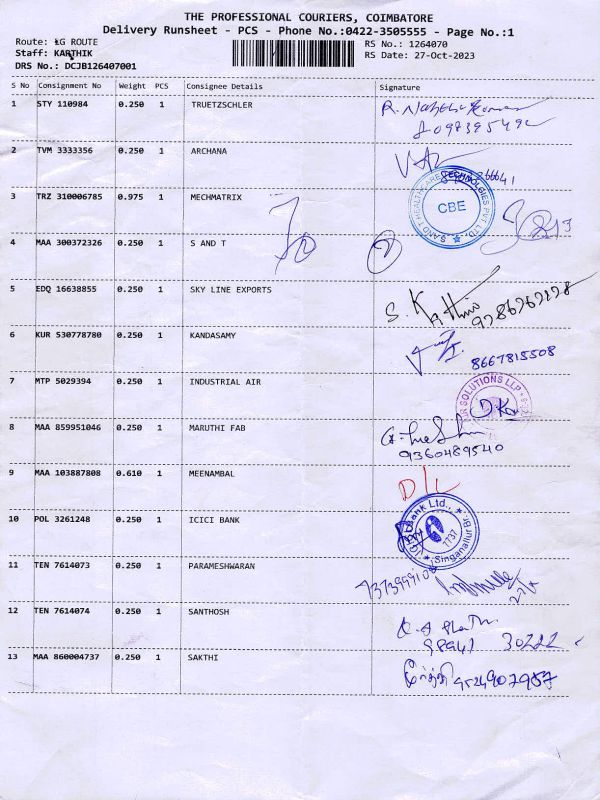 THE PROFESSIONAL COURIERS, COIMBATORE
Delivery Runsheet - PCS - Phone No.:0422-3505555 - Page No.:1
Route: LG ROUTE
RS No.: 1264070
Staff: KARTHIK
RS Date: 27-Oct-2023
DRS No.: DCJB126407001
S No Consignment No Weight PCS Consignee Details Signature
1 STY 110984 0.250 1 TRUETZSCHLER
2 TVM 3333356 0.250 1 ARCHANA
3 TRZ 310006785 0.975 1 MECHMATRIX
CBE
4 MAA 300372326 0.250 1 S AND T
5 EDQ 16638855 0.250 1 SKY LINE EXPORTS
6 KUR 530778780 0.250 1 KANDASAMY
8667815508
7 MTP 5029394 0.250 1 INDUSTRIAL AIR
SOLUTIONS LLP
8 MAA 859951046 0.250 1 MARUTHI FAB
9360489540
9 MAA 103887808 0.610 1 MEENAMBAL
D/L
10 POL 3261248 0.250 1 ICICI BANK
Bank Ltd.,
Singanallur Br
11 TEN 7614073 0.250 1 PARAMESHWARAN
12 TEN 7614074 0.250 1 SANTHOSH
30222
13 MAA 860004737 0.250 1 SAKTHI